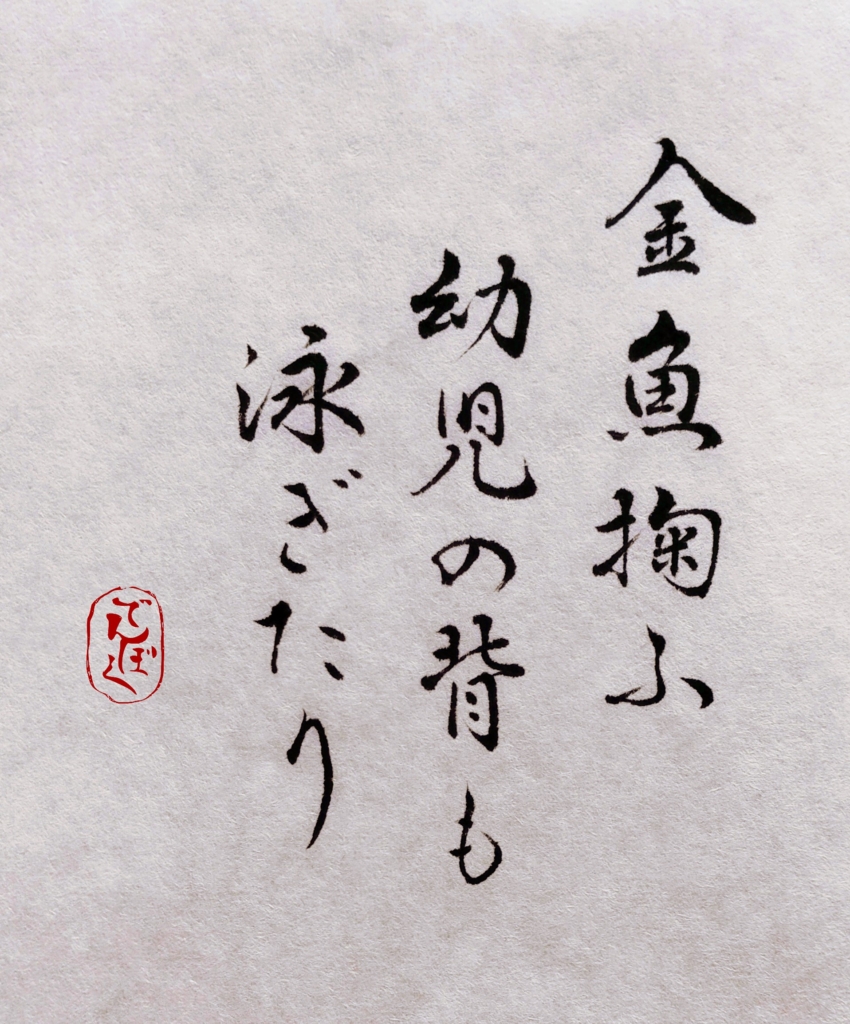 金魚掬ふ
幼児の背も
泳ぎたり
でんぼく